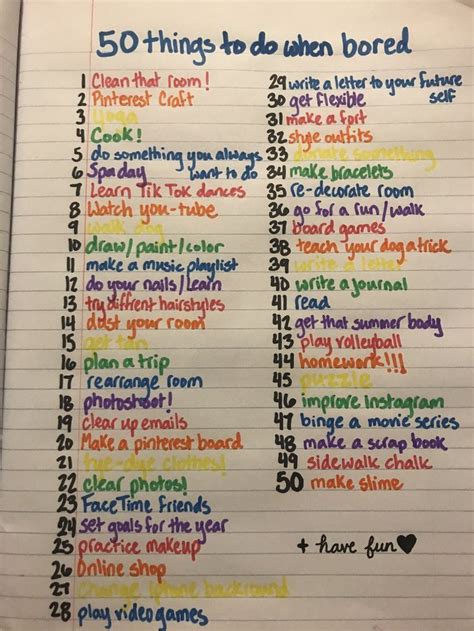 50 things to do when bored
1 Clean that room!
2 Pinterest Craft
3 Yoga
4 Cook!
5 do something you always
want to do
6 Spa day
7 Learn TikTok dances
8 Watch you-tube
9 walk dog
10 draw/paint/color
11 make a music playlist
12 do your nails/learn
13 try diffrent hairstyles
14 dust your room
15 get tan
16 plan a trip
17 rearrange room
18 photoshoot!
19 clear up emails
20 Make a pinterest board
21 tye-dye clothes!
22 clear photos!
23 FaceTime Friends
24 set goals for the year
25 practice makeup
26 Online shop
27 Change iphone backround
28 play video games
29 write a letter to your future
self
30 get flexible
31 make a fort
32 style outfits
33 donate something
34 make bracelets
35 re-decorate room
36 go for a run/walk
37 board games
38 teach your dog a trick
39 write a letter
40 write a journal
41 read
42 get that summer body
43 play volleyball
44 homework!!!
45 puzzle
46 improve instagram
47 binge a movie series
48 make a scrap book
49 sidewalk chalk
50 make slime
+ have fun♥